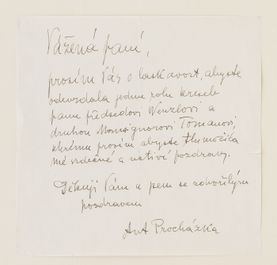 Vážená paní,
prosím Vás o laskavost, abyste
odevzdala jednu roli kresele
panu předsedovi Wenzlovi a
druhou Monsignorovi Tomanovi,
kterému prosím abyste tlumočila
mé srdečné a uctivé pozdravy.
Děkuji Vám a jsem se zdvořilým
pozdravem
Ant Procházka